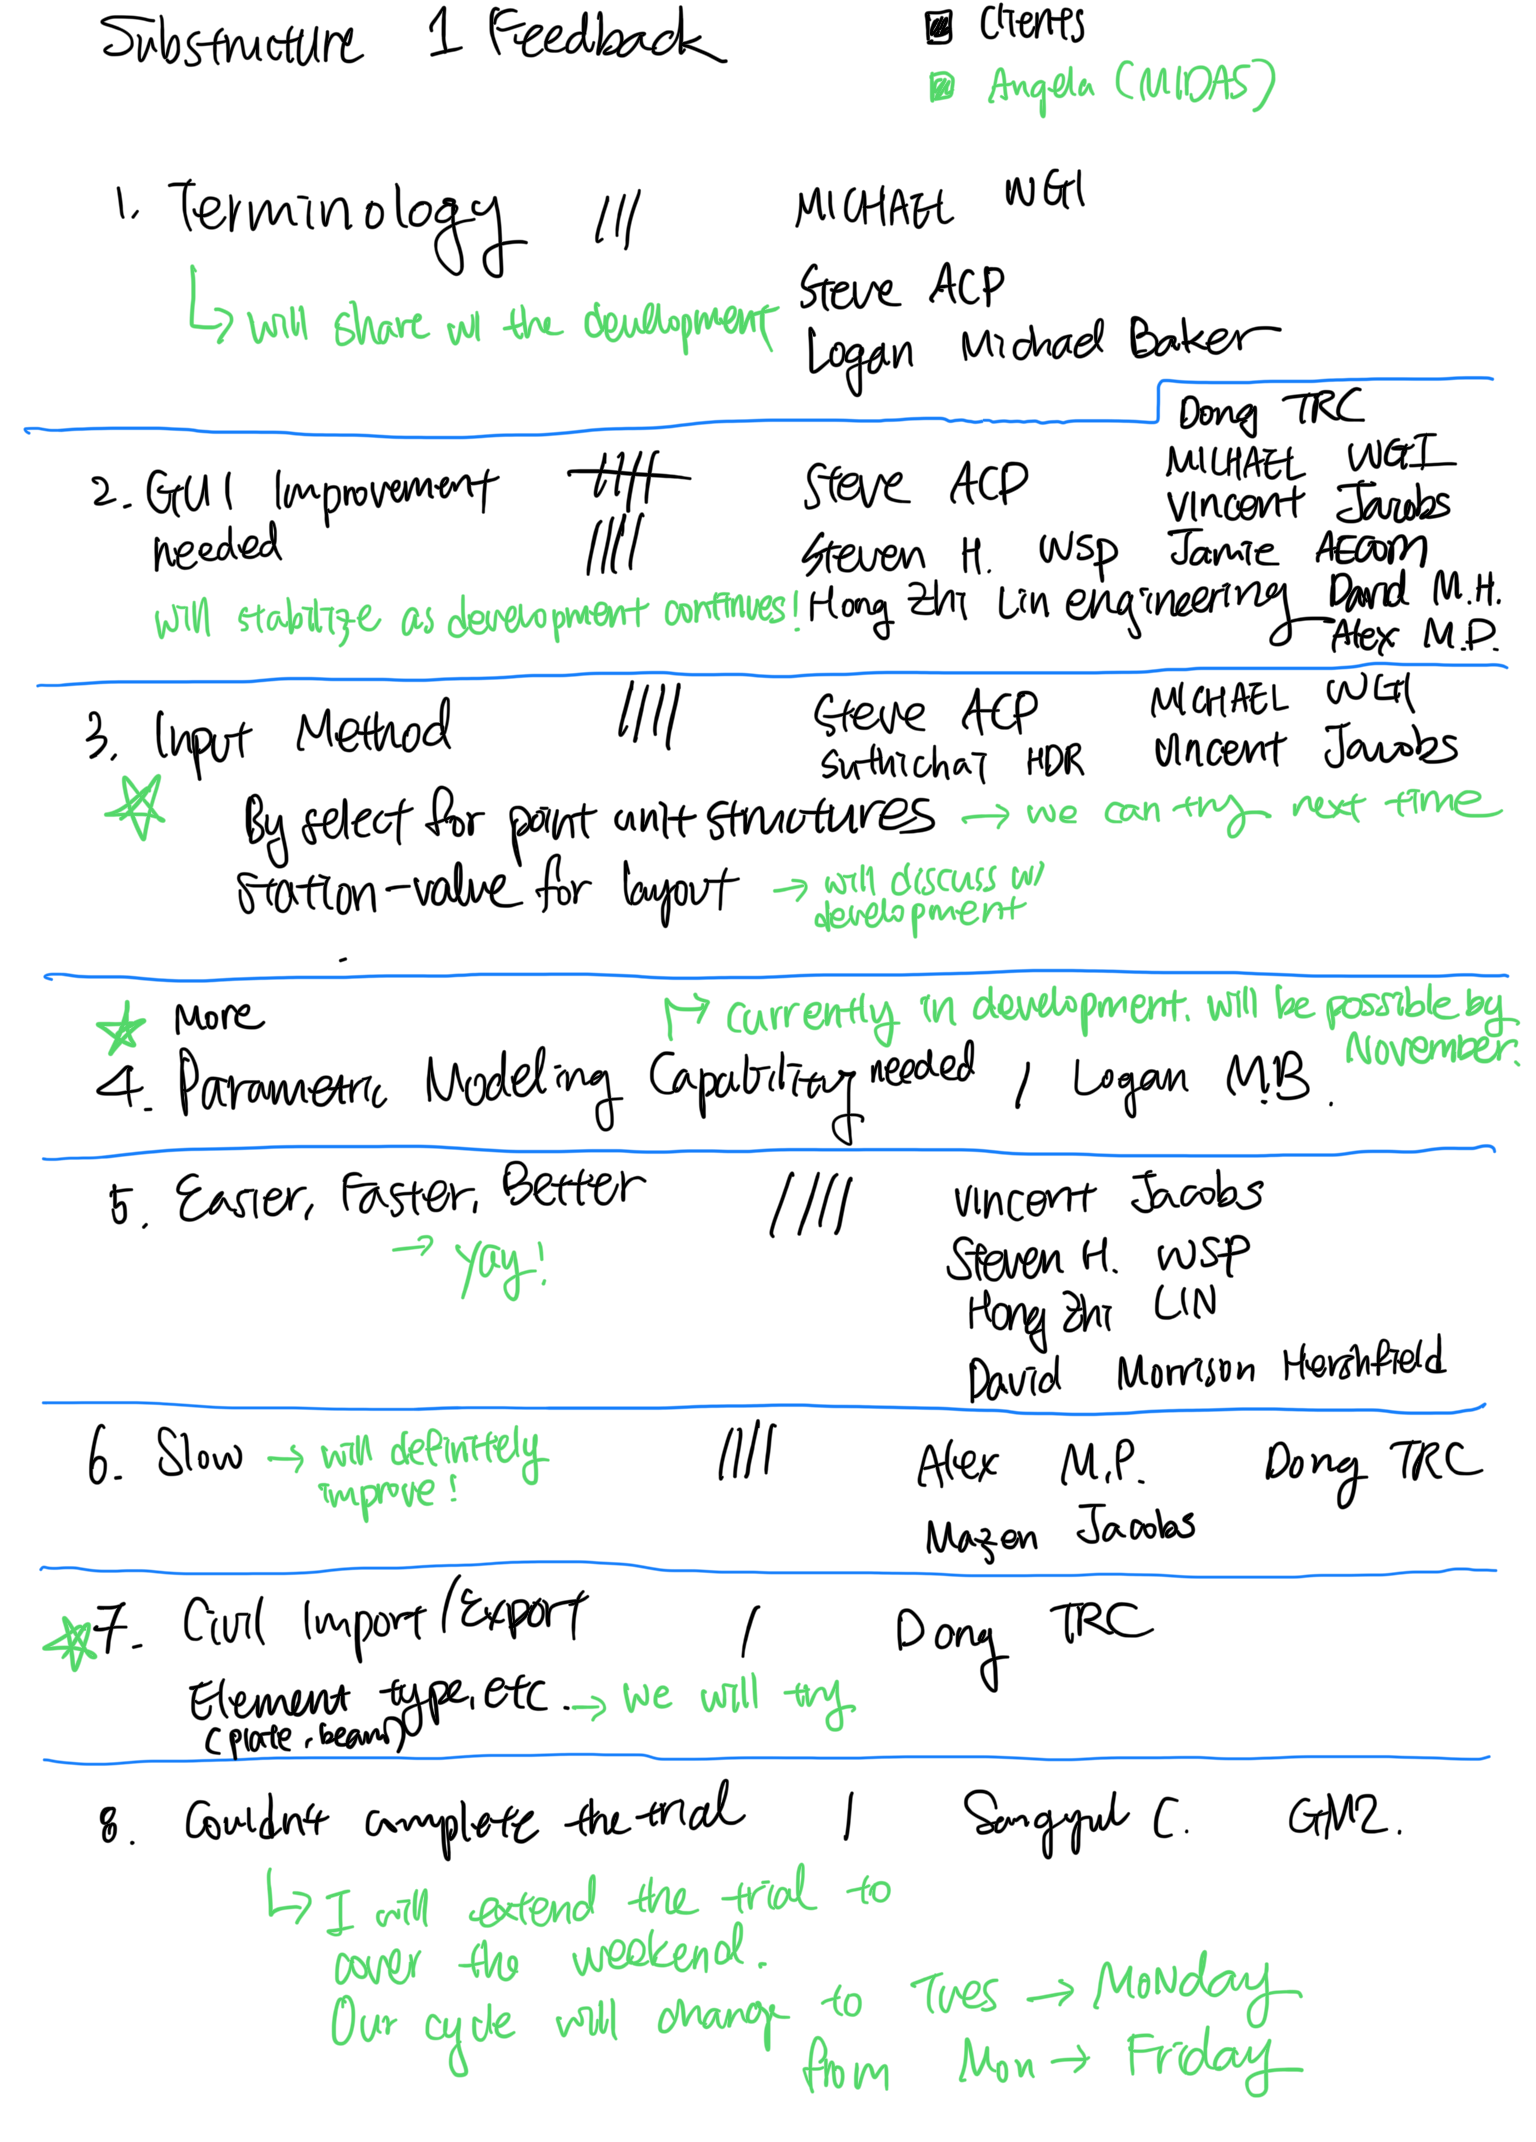 Substructure 1 Feedback
Clients
Angela (MIDAS)
1. Terminology
MICHAEL WGI
Steve ACP
Logan Michael Baker
will share w/ the development
2. GUI Improvement
needed
Steve ACP
Steven H. WSP
Hong Zhi Lin engineering
Dong TRC
MICHAEL WGI
Vincent Jacobs
Jamie AECOM
David M.H.
Alex M.P.
will stabilize as development continues!
3. Input Method
Steve ACP
Suthichai HDR
MICHAEL WGI
Vincent Jacobs
By select for point unit structures → we can try next time
Station-value for layout → will discuss w/
development
More
4. Parametric Modeling Capability needed / Logan M.B.
currently in development. will be possible by
November.
5. Easier, Faster, Better
→ yay!
Vincent Jacobs
Steven H. WSP
Hong Zhi LIN
David Morrison Hershfield
6. Slow → will definitely
improve!
Alex M.P.
Dong TRC
Mazen Jacobs
7. Civil Import/Export
Dong TRC
Element type, etc. → we will try
(plate, beam)
8. Couldn't complete the trial
Sangyul C. GM2.
I will extend the trial to
cover the weekend.
Our cycle will change to Tues → Monday
from Mon → Friday